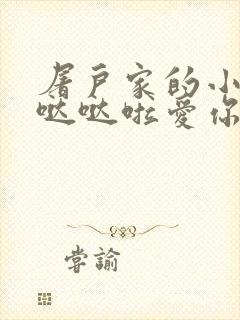 屠户家的小
哒哒啦爱你
尝谕